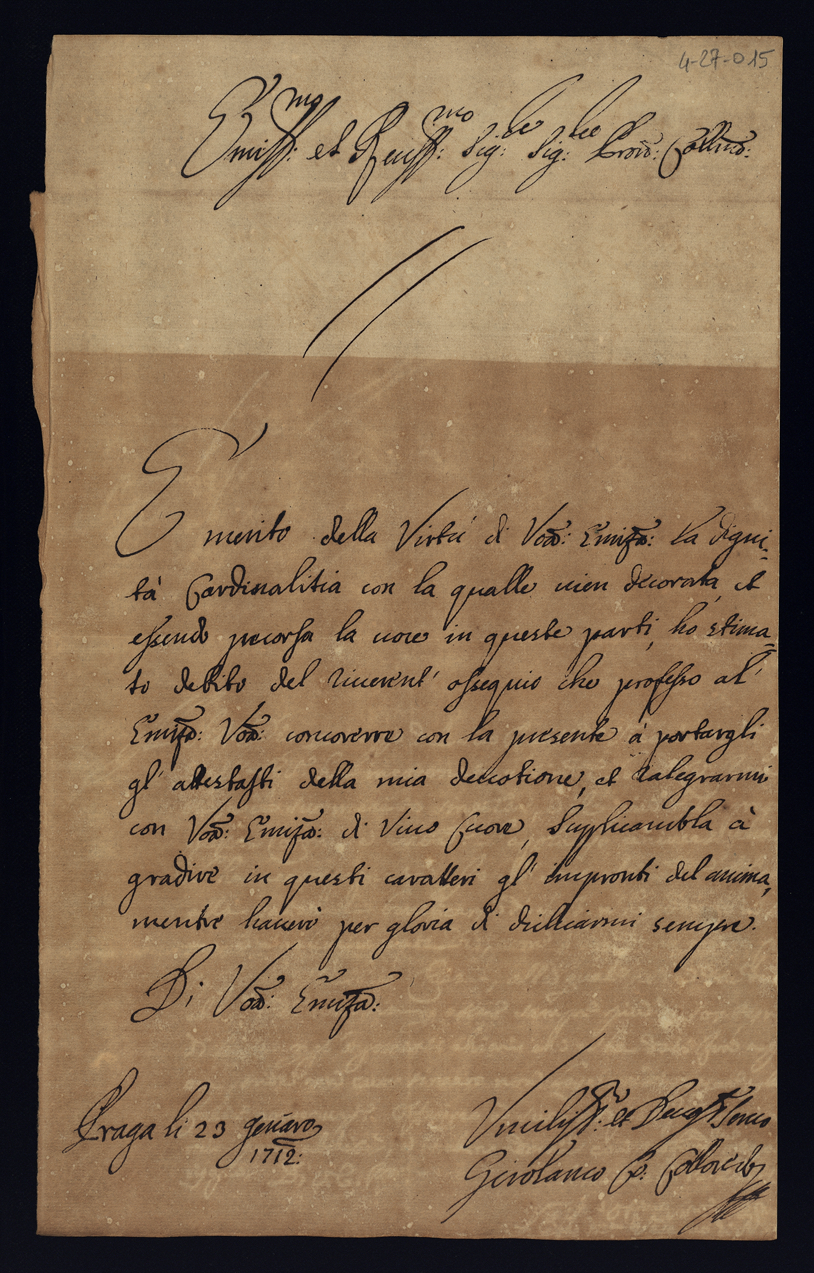 4-27-015
Emiss:mo et Reuss:mo Sig:re Sig:re Prone: Collmo:
E merito della Virtù di Vođa: Emiza: la digni=
tà Cardinalitia con la qualle uien decorata, et
essendo precorsa la uoce in queste parti, ho stima=
to debito del riuerent' ossequio che professo al'
Emiza: Voa: concorerre con la presente à portargli
gl' attestasti della mia deuotione, et ralegrarmi
con Voa: Emiza: di Viuo Cuore, Supplicandola à
gradire in questi caratteri gl' impronti del anima,
mentre hauerò per gloria di dichiarmi sempre.
Di Voa: Emiza:
Praga li 23 genaro
1712:
Vmiliss:o et Deuotss: Seruo
Girolamo C: Colloredo